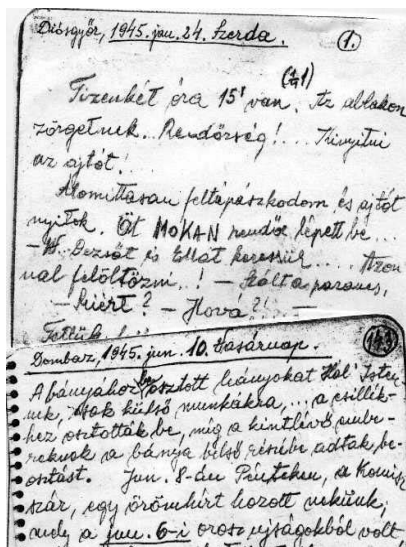 Diósgyőr, 1945. jan. 24. Szerda. 1.
(¼1)
Tizenkét óra 15' van. Az ablakon
zörgetnek... Rendőrség!... Kinyitni
az ajtót!
Álomittasan feltápászkodom és ajtót
nyitok. Öt MOKAN rendőr lépett be...
Dezsőt és Ellát keressük.... Azon
nal felöltözni..! — szólt a parancs.
— Miért? — Hová?!..
Dombasz, 1945. jun. 10. Vasárnap. 143
A bányához beosztott leányokat Hál' Isten-
nek, csak külső munkákra,... a csillék-
hez osztották be, míg a kintlévő embe-
reknek a bánya belső részébe adtak be-
osztást. Jun. 8-án Pénteken, a Komisz
szár, egy örömhírt hozott nekünk,
mely a jun. 6-i orosz ujságokból volt